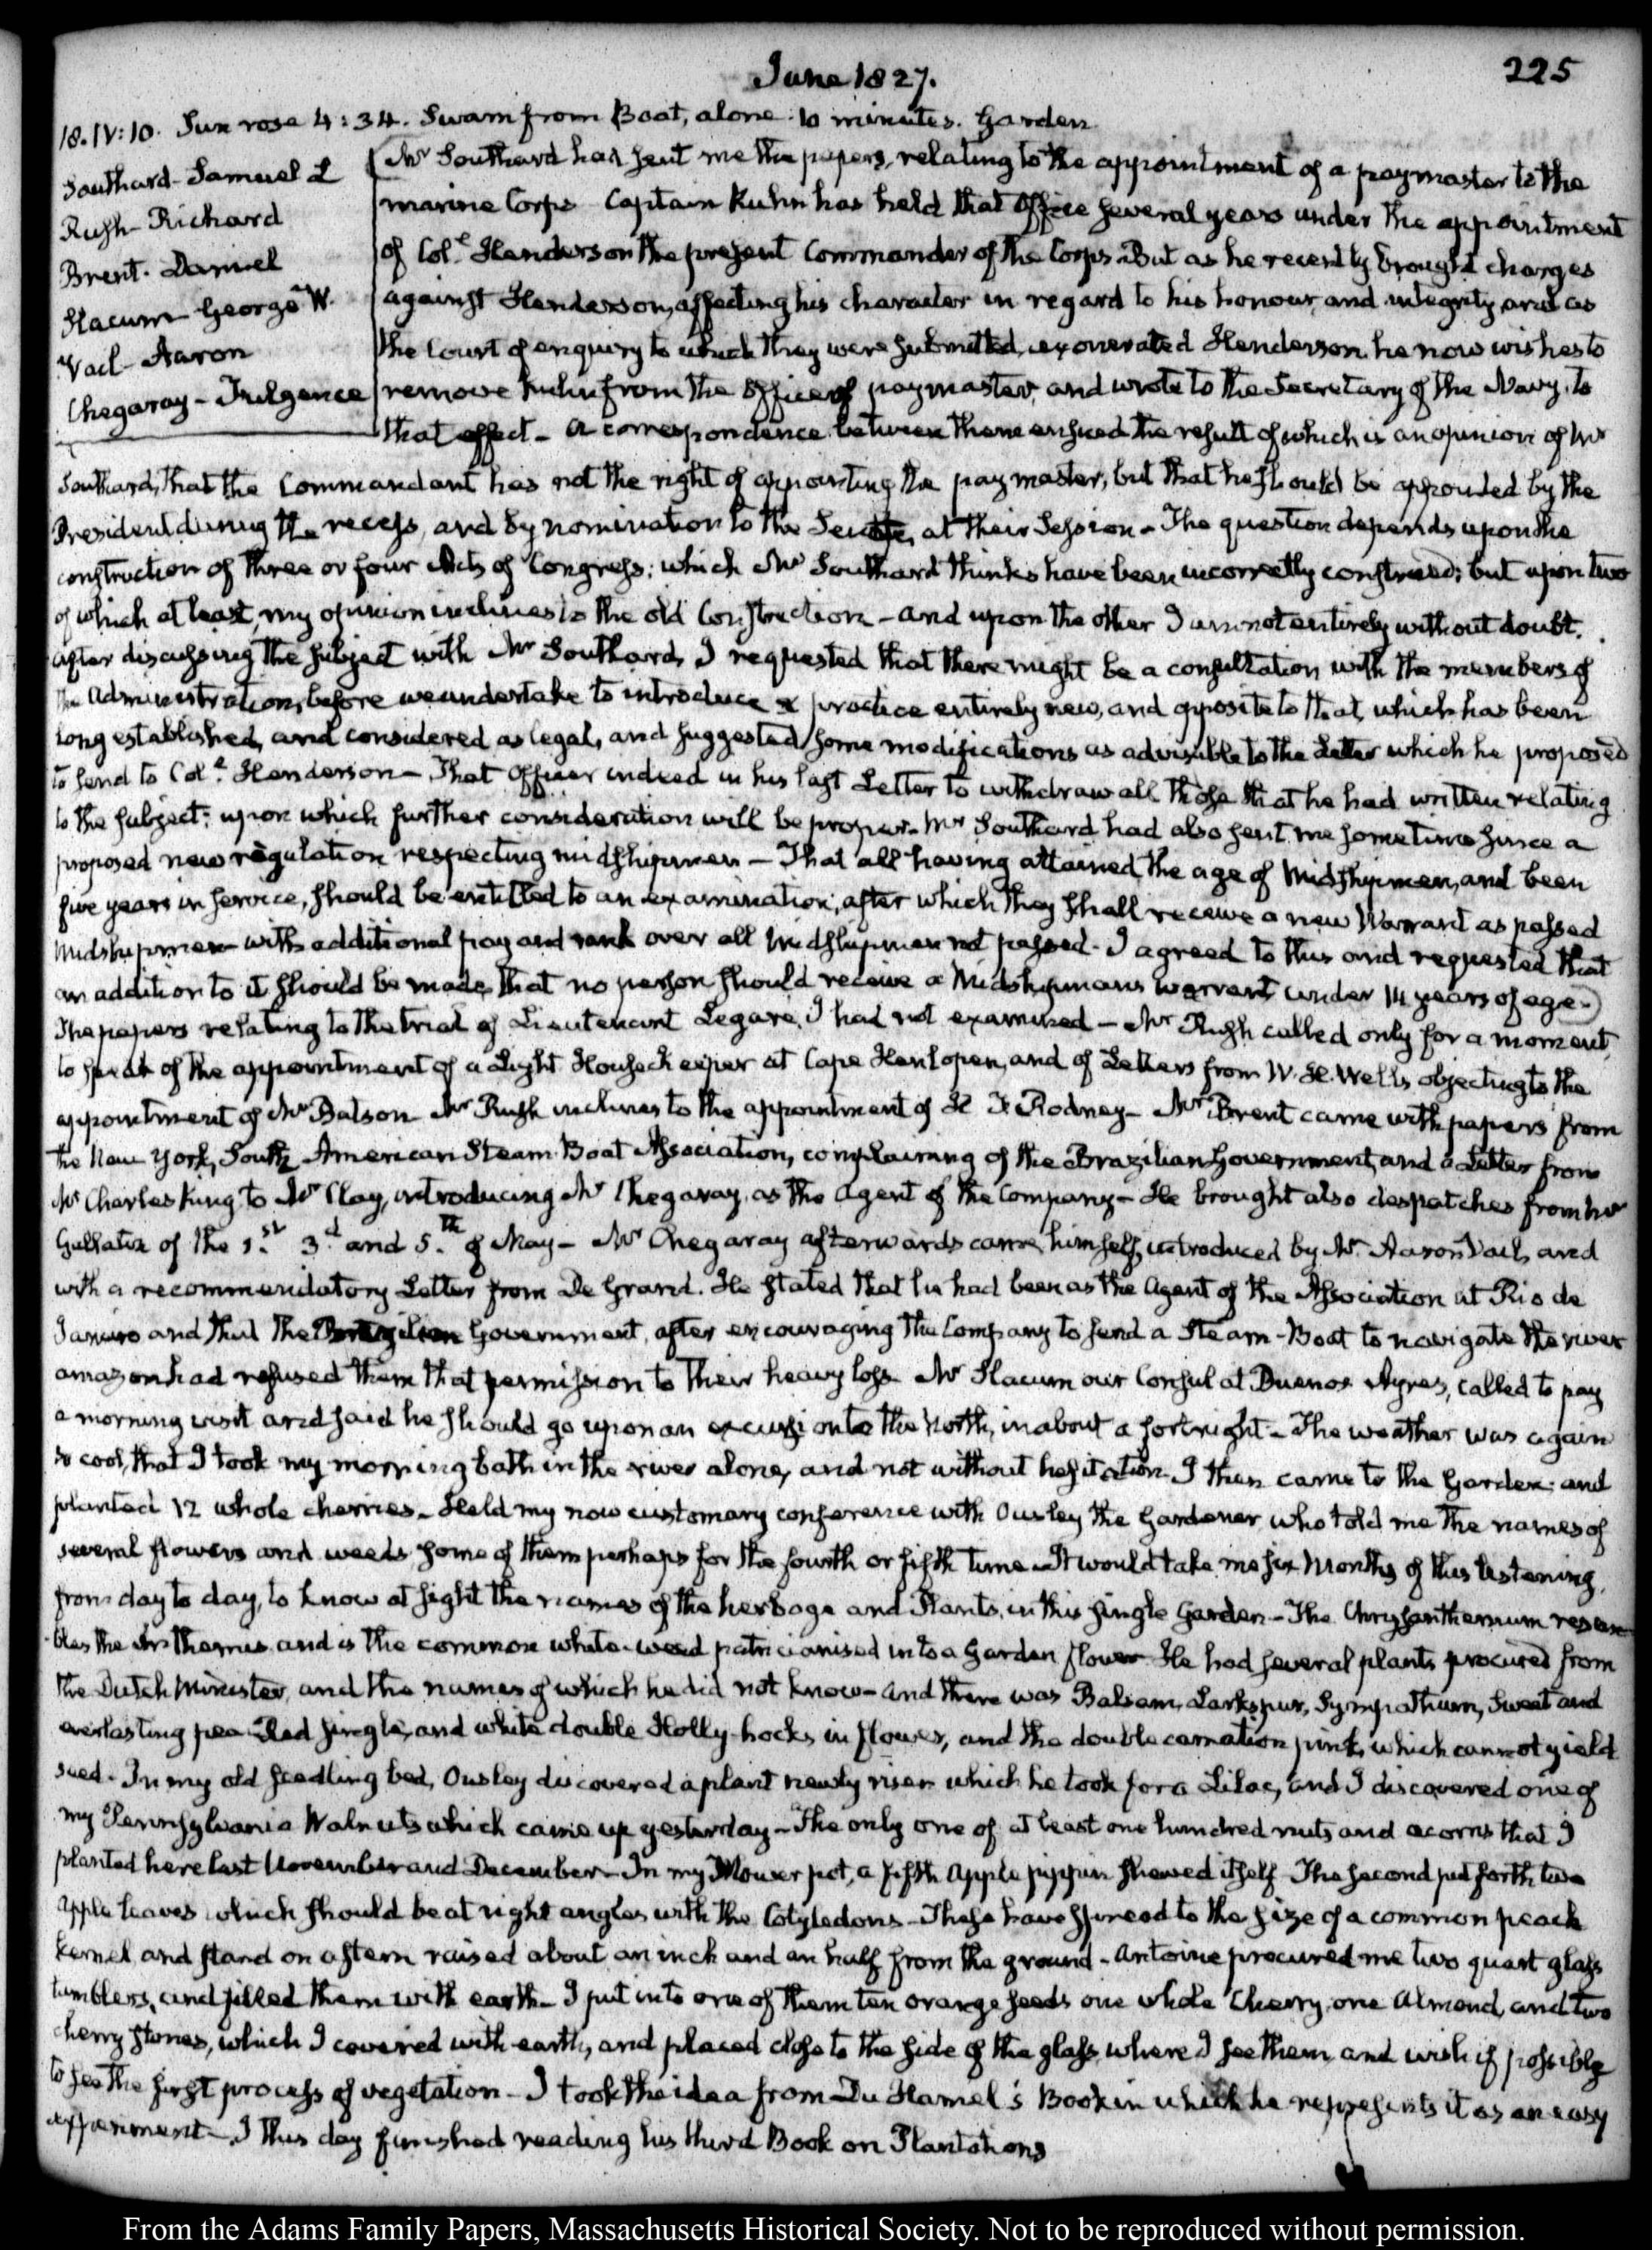 June 1827.
225
18. IV:10. Sun rose 4:34. Swam from Boat, alone 10 minutes. Garden
Southard- Samuel L
Rush- Richard
Brent- Daniel
Slacum George W.
Vail- Aaron
Chegaray- Julgence
Mr Southard had sent me the papers, relating to the appointment of a paymaster to the
marine Corps Captain Kuhn has held that Office several years under the appointment
of Coll. Henderson the present Commander of the Corps. But as he recently brought charges
against Henderson, affecting his character in regard to his honour, and integrity, and as
the Court of enquiry to which they were submitted, exonerated Henderson, he now wishes to
remove Kuhn from the Office of paymaster, and wrote to the Secretary of the Navy, to
that effect- A correspondence between them ensued the result of which is an opinion of Mr
Southard, that the Commandant has not the right of appointing the paymaster, but that he should be appointed by the
President during the recess, and by nomination to the Senate, at their Session- The question depends upon the
construction of three or four Acts of Congress; which Mr Southard thinks have been incorrectly construed; but upon two
of which at least, my opinion inclines to the old Construction- and upon the other I am not entirely without doubt.
after discussing the subject with Mr Southard, I requested that there might be a consultation with the members of
the Administration, before we undertake to introduce a practice entirely new, and opposite to that, which has been
long established, and considered as legal, and suggested some modifications as advisable to the Letter which he proposed
to send to Coll. Henderson- That Officer indeed in his last Letter to withdraw all those that he had written relating
to the subject; upon which further consideration will be proper- Mr Southard had also sent me sometime since a
proposed new regulation respecting midshipmen- That all having attained the age of Midshipmen, and been
five years in service, should be entitled to an examination, after which they shall receive a new Warrant as passed
Midshipmen with additional pay and rank over all Midshipmen not passed- I agreed to this and requested that
an addition to it should be made, that no person should receive a Midshipmans warrant under 14 years of age.)
The papers relating to the trial of Lieutenant Legare, I had not examined- Mr Rush called only for a moment,
to speak of the appointment of a Light Housekeeper at Cape Henlopen, and of Letters from W. H. Wells objecting to the
appointment of Mr Batson Mr Rush inclines to the appointment of H F Rodney- Mr Brent came with papers from
the New York, South American Steam Boat Association, complaining of the Brazilian Government, and a Letter from
Mr Charles King to Mr Clay, introducing Mr Chegaray, as the Agent of the Company- He brought also despatches from Mr
Gallatin of the 1st. 3d. and 5th. of May- Mr Chegaray afterwards came himself, introduced by Mr Aaron Vail, and
with a recommendatory Letter from De Grand. He stated that he had been as the Agent of the Association at Rio de
Janeiro and that the Brazilian Government, after encouraging the Company to send a Steam-Boat to navigate the river
amazon had refused them that permission to their heavy loss- Mr Slacum our Consul at Buenos Ayres, called to pay
a morning visit and said he should go upon an excursion to the North, in about a fortnight- The weather was again
so cool, that I took my morning bath in the river alone, and not without hesitation. I then came to the Garden: and
planted 12 whole cherries- Held my now customary conference with Ousley the Gardener who told me the names of
several flowers and weeds some of them perhaps for the fourth or fifth time- It would take me six Months of this listening
from day to day, to know at sight the names of the herbage and Plants, in this single Garden- The Chrysanthemum resem-
bles the Anthemis and is the common white-weed patricianised into a Garden flower He had several plants procured from
the Dutch Minister, and the names of which he did not know- And there was Balsam, Larkspur, Sympathum, Sweet and
everlasting pea Red single, and white double Holly-hocks in flower, and the double carnation pink, which cannot yield
seed. In my old seedling bed, Ousley discovered a plant newly risen which he took for a Lilac, and I discovered one of
my Pennsylvania Walnuts which came up yesterday- The only one of at least one hundred nuts and acorns that I
planted here last November and December- In my flower pot, a fifth apple pippin shewed itself The second put forth two
Apple leaves which should be at right angles with the Cotyledons- These have spread to the size of a common peach
kernel and stand on a stem raised about an inch and an half from the ground- Antoine procured me two quart glass
tumblers, and filled them with earth- I put into one of them ten orange seeds one whole Cherry, one Almond, and two
cherry stones, which I covered with earth, and placed close to the side of the glass where I see them and wish if possible
to see the first process of vegetation- I took the idea from Du Hamel's Book in which he represents it as an easy
experiment- I this day finished reading his third Book on Plantations
From the Adams Family Papers, Massachusetts Historical Society. Not to be reproduced without permission.